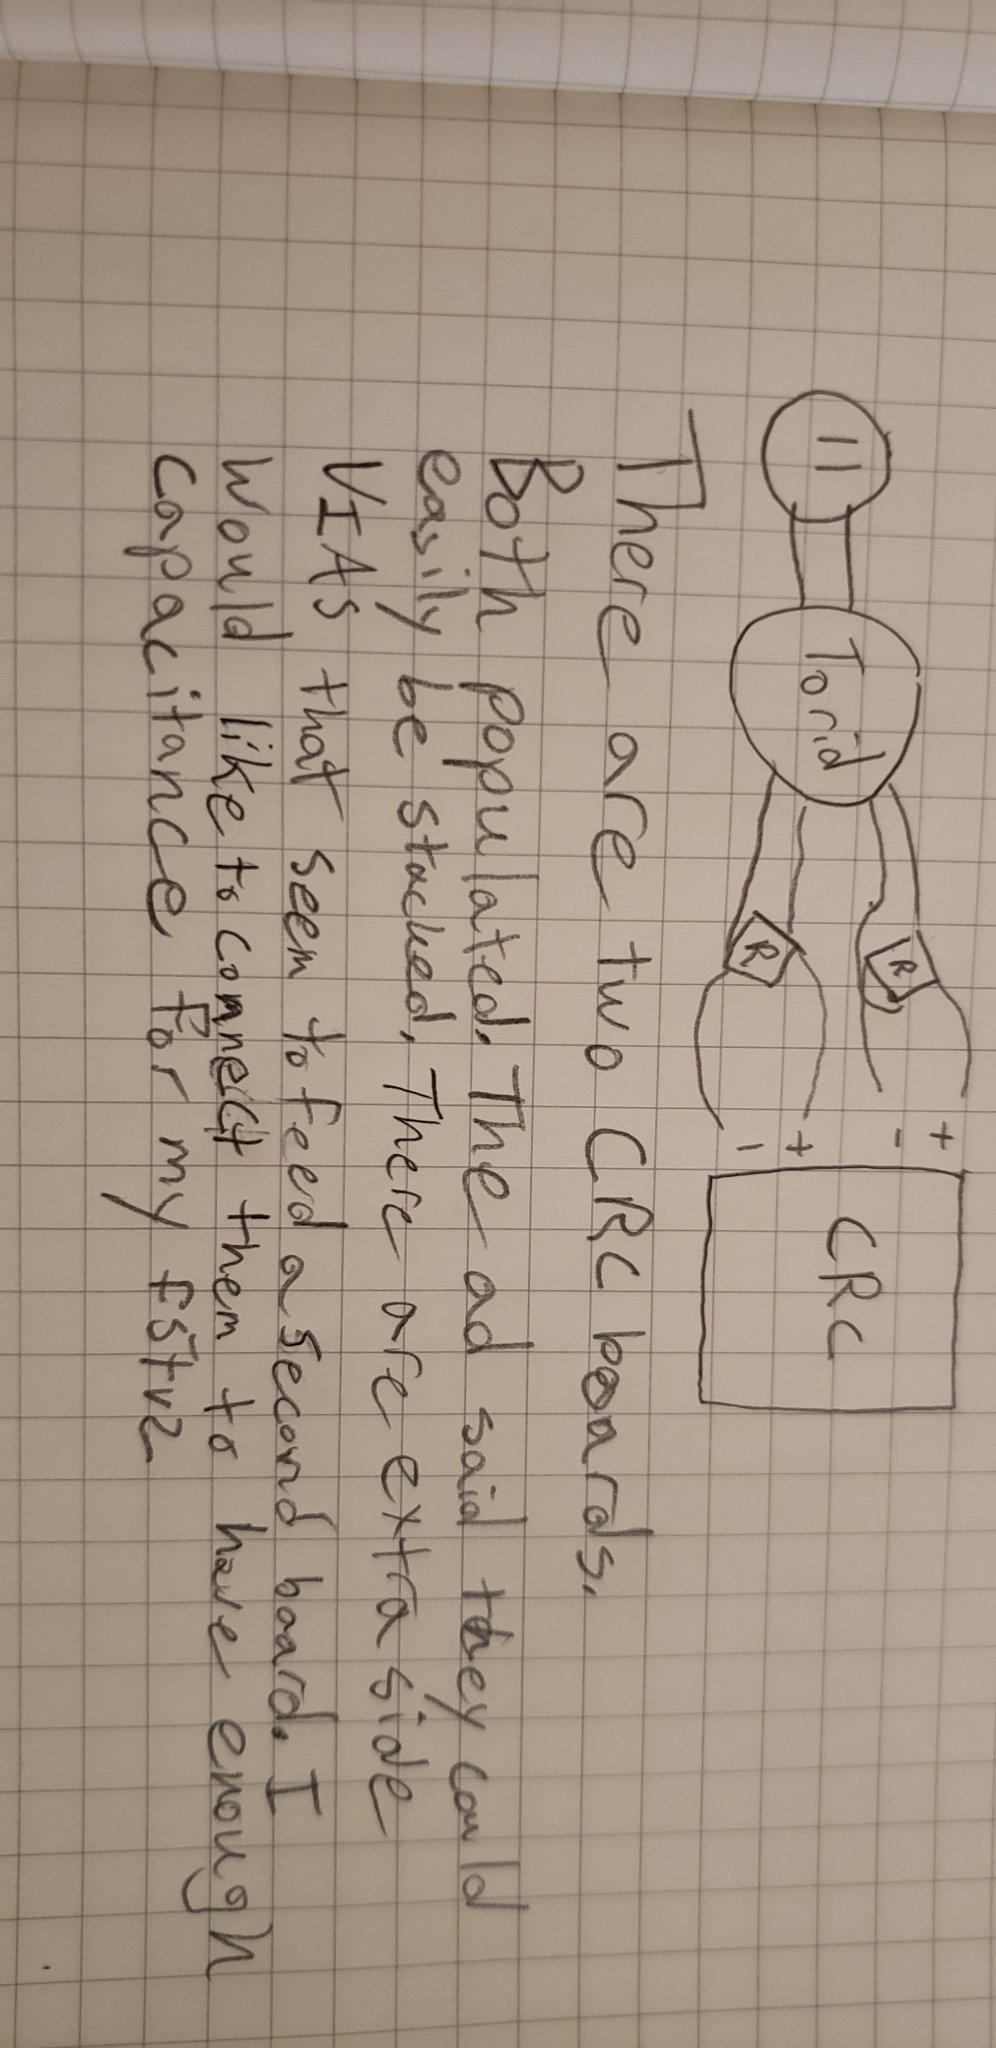 11
Torid
R
R
+
-
+
-
CRC
There are two CRC boards.
Both populated. The ad said they could
easily be stacked. There are extra side
VIAs that seem to feed a second board. I
Would like to connect them to have enough
capacitance for my F5tv2